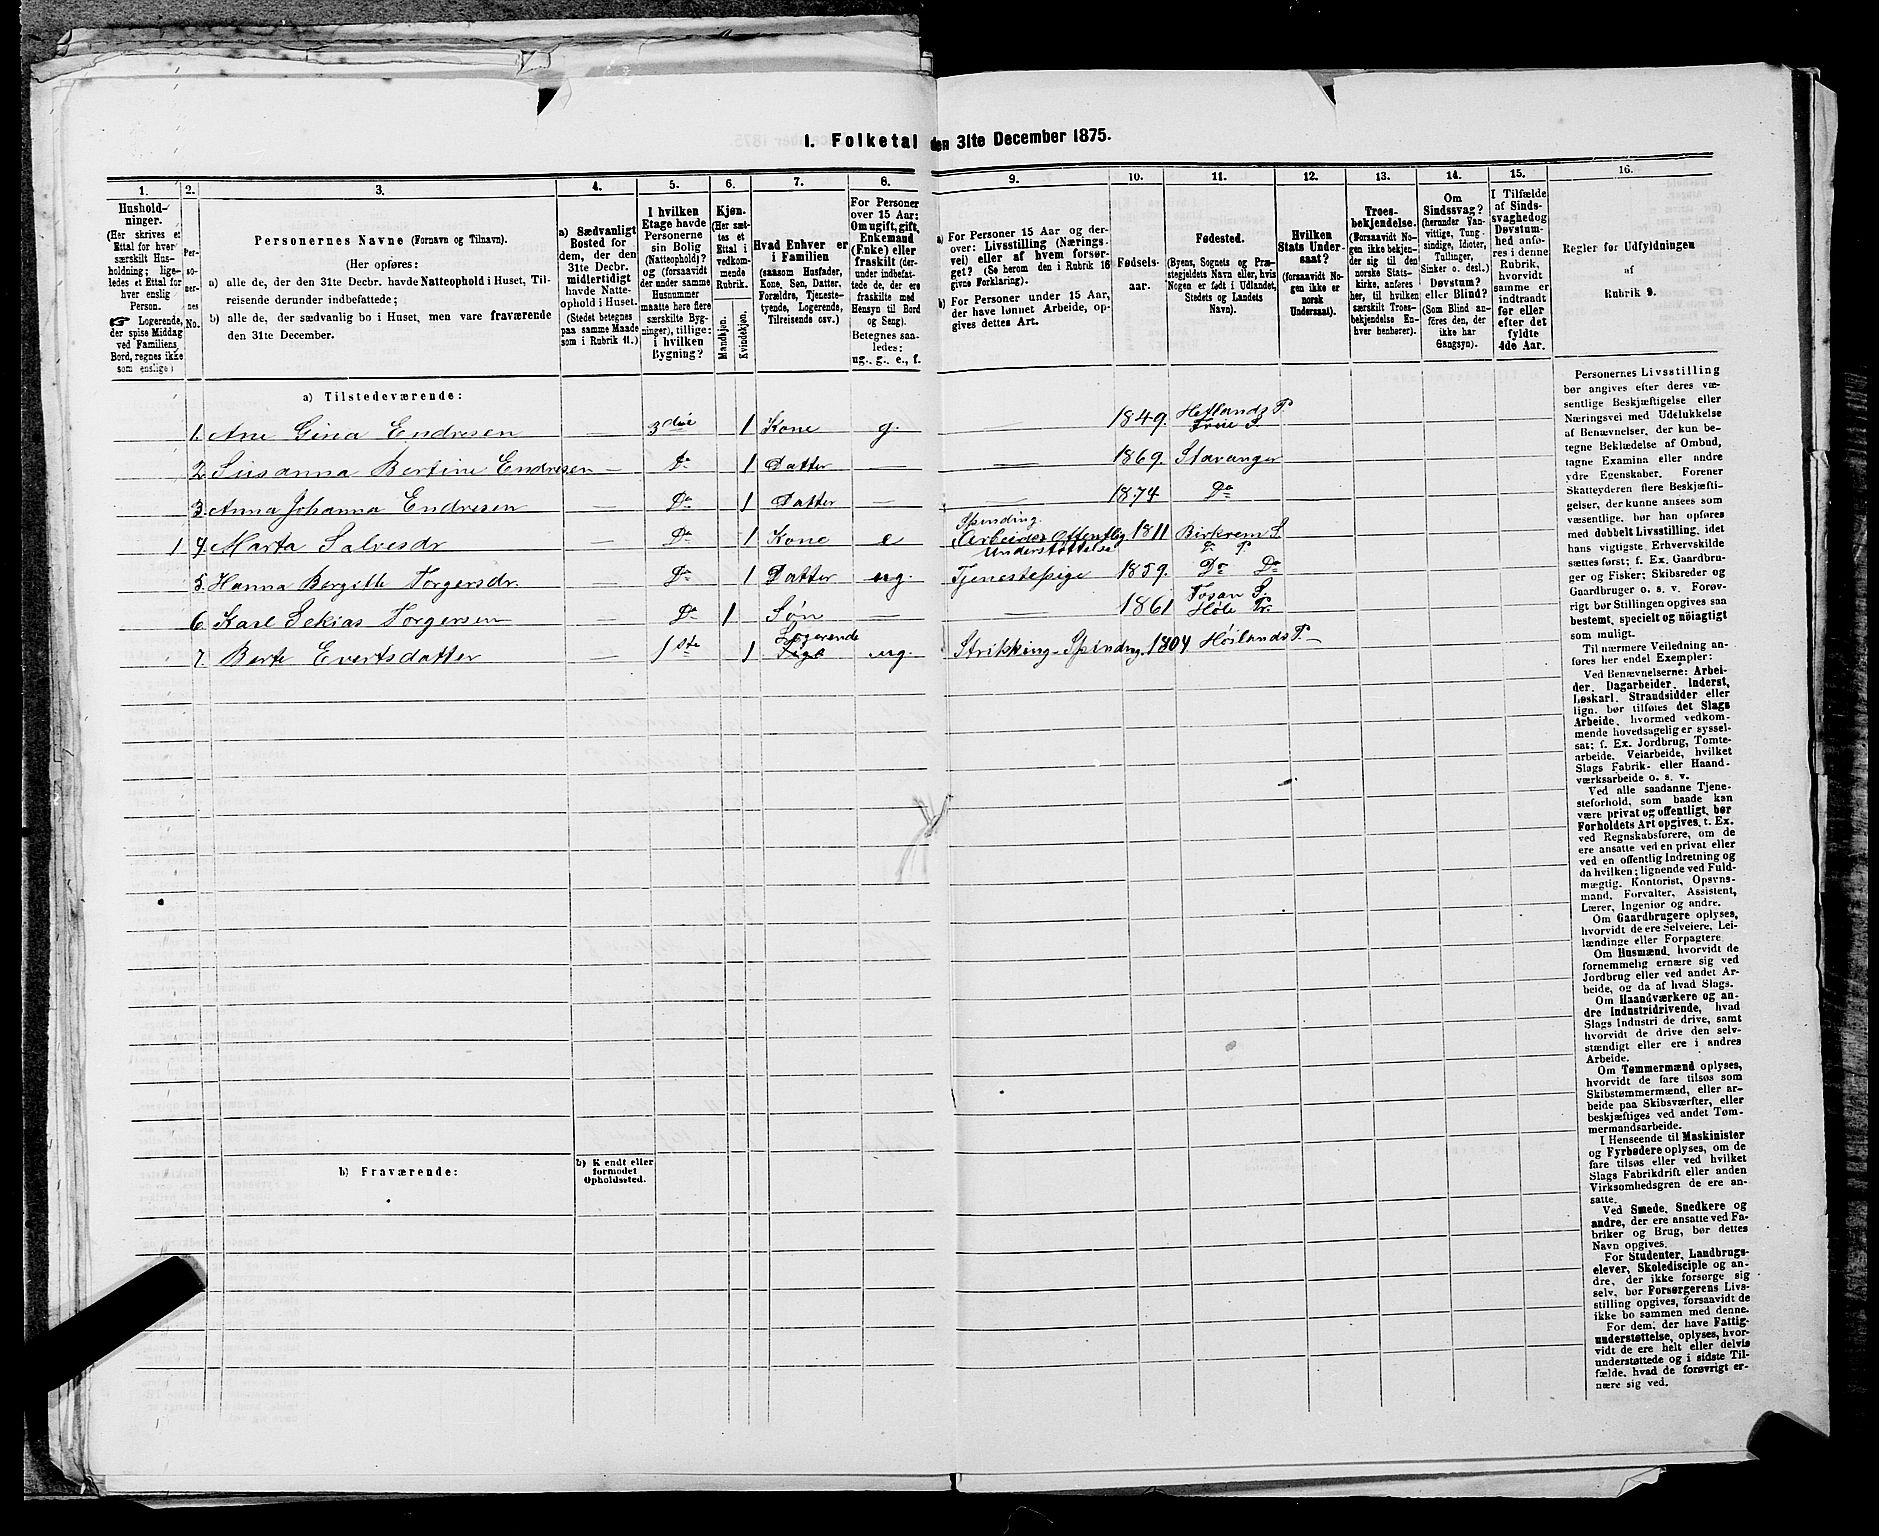 1. Folketal den 31te December 1875.
1. 2. 3. 4. 5. 6. 7. 8. 9. 10. 11. 12. 13. 14. 15. 16.
Hushold-
ninger.
(Her skrives et
Ettal for hver
særskilt Hus-
holdning; lige-
ledes et Ettal for
hver enslig
Person.
☞ Logerende,
der spise Middag
ved Familiens
Bord, regnes ikke
som enslige)
Per-
so-
ner-
nes
No.
Personernes Navne (Fornavn og Tilnavn).
(Her opføres:
a) alle de, der den 31te Decbr. havde Natteophold i Huset, Til-
reisende derunder indbefattede;
b) alle de, der sædvanlig bo i Huset, men vare fraværende
den 31te December.
a) Sædvanligt
Bosted for
dem, der den
31te Decbr.
midlertidigt
havde Natte-
ophold i Huset.
(Stedet betegnes
paa samme Maade
som i Rubrik 11.)
I hvilken
Etage havde
Personerne
sin Bolig
(Natteophold)?
og (forsaavidt
der under samme
Husnummer
maatte høre flere
særskilte Byg-
ninger), tillige:
i hvilken
Bygning?
Kjøn.
(Her sæt-
tes et
Ettal i
vedkom-
mende
Rubrik.
Mandkjøn.
Kvindekjøn.
Hvad Enhver er
i Familien
(saasom Husfader,
Kone, Søn, Datter,
Forældre, Tjeneste-
tyende, Logerende,
Tilreisende osv.)
For Personer
over 15 Aar:
Om ugift, gift,
Enkemand
(Enke) eller
fraskilt (der-
under indbefat-
tede de, der ere
fraskilte med
Hensyn til Bord
og Seng).
Betegnes saa-
ledes:
ug., g., e., f.
a) For Personer 15 Aar og der-
over: Livsstilling (Nærings-
vei) eller af hvem forsør-
get? (Se herom den i Rubrik 16
givne Forklaring).
b) For Personer under 15 Aar,
der have lønnet Arbeide, op-
gives dettes Art.
Fødsels-
aar.
Fødested.
(Byens, Sognets og Præ-
stegjeldets Navn eller, hvis
Nogen er født i Udlandet,
Stedets og Landets
Navn).
Hvilken
Stats Under-
saat?
(forsaavidt No-
gen ikke er
norsk
Undersaat).
Troes-
bekjendelse.
(Forsaavidt No-
gen ikke bekjen-
der sig til den
norske Stats-
kirke, anføres
her, til hvilken
særskilt Troes-
bekjendelse En-
hver henhører).
Om
Sindssvag?
(herunder Van-
vittige, Tung-
sindige, Idioter,
Tullinger,
Sinker o. desl.)
Døvstum?
eller Blind?
(Som Blind an-
føres den, der
ikke har
Gangsyn).
I Tilfælde
af Sinds-
svaghed og
Døvstum-
hed anfø-
res i denne
Rubrik,
hvorvidt
samme er
indtraadt
før eller
efter det
fyldte
4de Aar.
Regler for Udfyldningen
af
Rubrik 9.
a) Tilstedeværende:
1. Ane Gina Endresen — 3die 1 Kone g. — 1849. Hetlands P.
2. Susanna Bertine Endresen — Do 1 Datter — — 1869. Stavanger
3. Anna Johanna Endresen — Do 1 Datter — — 1874 Do
Spinding.
1 4. Marta Salvesdr — Do 1 Kone e Arbeider Offentlig 1811 Birkrem S
Understøttelse P
5. Hanna Bergitte Torgersdr. — Do 1 Datter ug. Tjenestepige 1859. Do Do
6. Karl Sekias Torgersen — Do 1 Søn — — 1861 Høle Pr.
Logerende
7. Berte Evertsdatter — 1ste 1 Pige ug. Strikking-Spindng. 1804 Høilands P. —
Personernes Livsstilling
bør angives efter deres væ-
sentlige Beskjæftigelse eller
Næringsvei med Udelukkelse
af Benævnelser, der kun be-
tegne Beklædelse af Ombud,
tagne Examina eller andre
ydre Egenskaber. Forener
Skatteyderen flere Beskjæfti-
gelser, der kunne ansees som
væsentlige, bør han opføres
med dobbelt Livsstilling, idet
hans vigtigste Erhvervskilde
sættes først; f. Ex. Gaardbru-
ger og Fisker; Skibsreder og
Gaardbruger o. s. v. Forøv-
rigt bør Stillingen opgives saa
bestemt, specielt og nøiagtigt
som muligt.
Til nærmere Veiledning an-
føres her endel Exempler:
Ved Benævnelserne: Arbei-
der, Dagarbeider, Inderst,
Løskarl, Strandsidder eller
lign. bør tilføies det Slags
Arbeide, hvormed vedkom-
mende hovedsagelig er syssel-
sat; f. Ex. Jordbrug, Tomte-
arbeide, Veiarbeide, hvilket
Slags Fabrik- eller Haand-
værksarbeide o. s. v.
Ved alle saadanne Tjene-
steforhold, som baade kan
være privat og offentligt, bør
Forholdets Art opgives, t. Ex.
ved Regnskabsførere, om de
ere ansatte ved en privat eller
ved en offentlig Indretning og
da hvilken; lignende ved Fuld-
mægtig, Kontorist, Opsyns-
mand, Forvalter, Assistent,
Lærer, Ingeniør og andre.
Om Gaardbrugere oplyses,
hvorvidt de ere Selveiere, Lei-
lændinge eller Forpagtere.
Om Husmænd, hvorvidt de
fornemmelig ernære sig ved
Jordbrug eller ved andet Ar-
beide, og da af hvad Slags.
Om Haandværkere og an-
dre Industridrivende, hvad
Slags Industri de drive, samt
hvorvidt de drive den selv-
stændigt eller ere i andres
Arbeide.
Om Tømmermænd oplyses,
hvorvidt de fare tilsøs som
Skibstømmermænd, eller ar-
beide paa Skibsværfter, eller
beskjæftiges ved andet Tøm-
mermandsarbeide.
I Henseende til Maskinister
og Fyrbødere oplyses, om de
fare tilsøs eller ved hvilket
Slags Fabrikdrift eller anden
Virksomhedsgren de ere an-
satte.
Ved Smede, Snedkere og
andre, der ere ansatte ved Fa-
briker og Brug, bør dettes
Navn opgives.
For Studenter, Landbrugs-
elever, Skoledisciple og an-
dre, der ikke forsørge sig
selv, bør Forsørgerens Livs-
stilling opgives, forsaavidt de
ikke bo sammen med denne.
For dem, der have Fattig-
understøttelse, oplyses, hvor-
vidt de ere helt eller delvis
understøttede og i sidste Til-
fælde, hvad de forøvrigt er-
nære sig ved.
b) Fraværende:
b) Kjendt eller
formodet
Opholdssted.